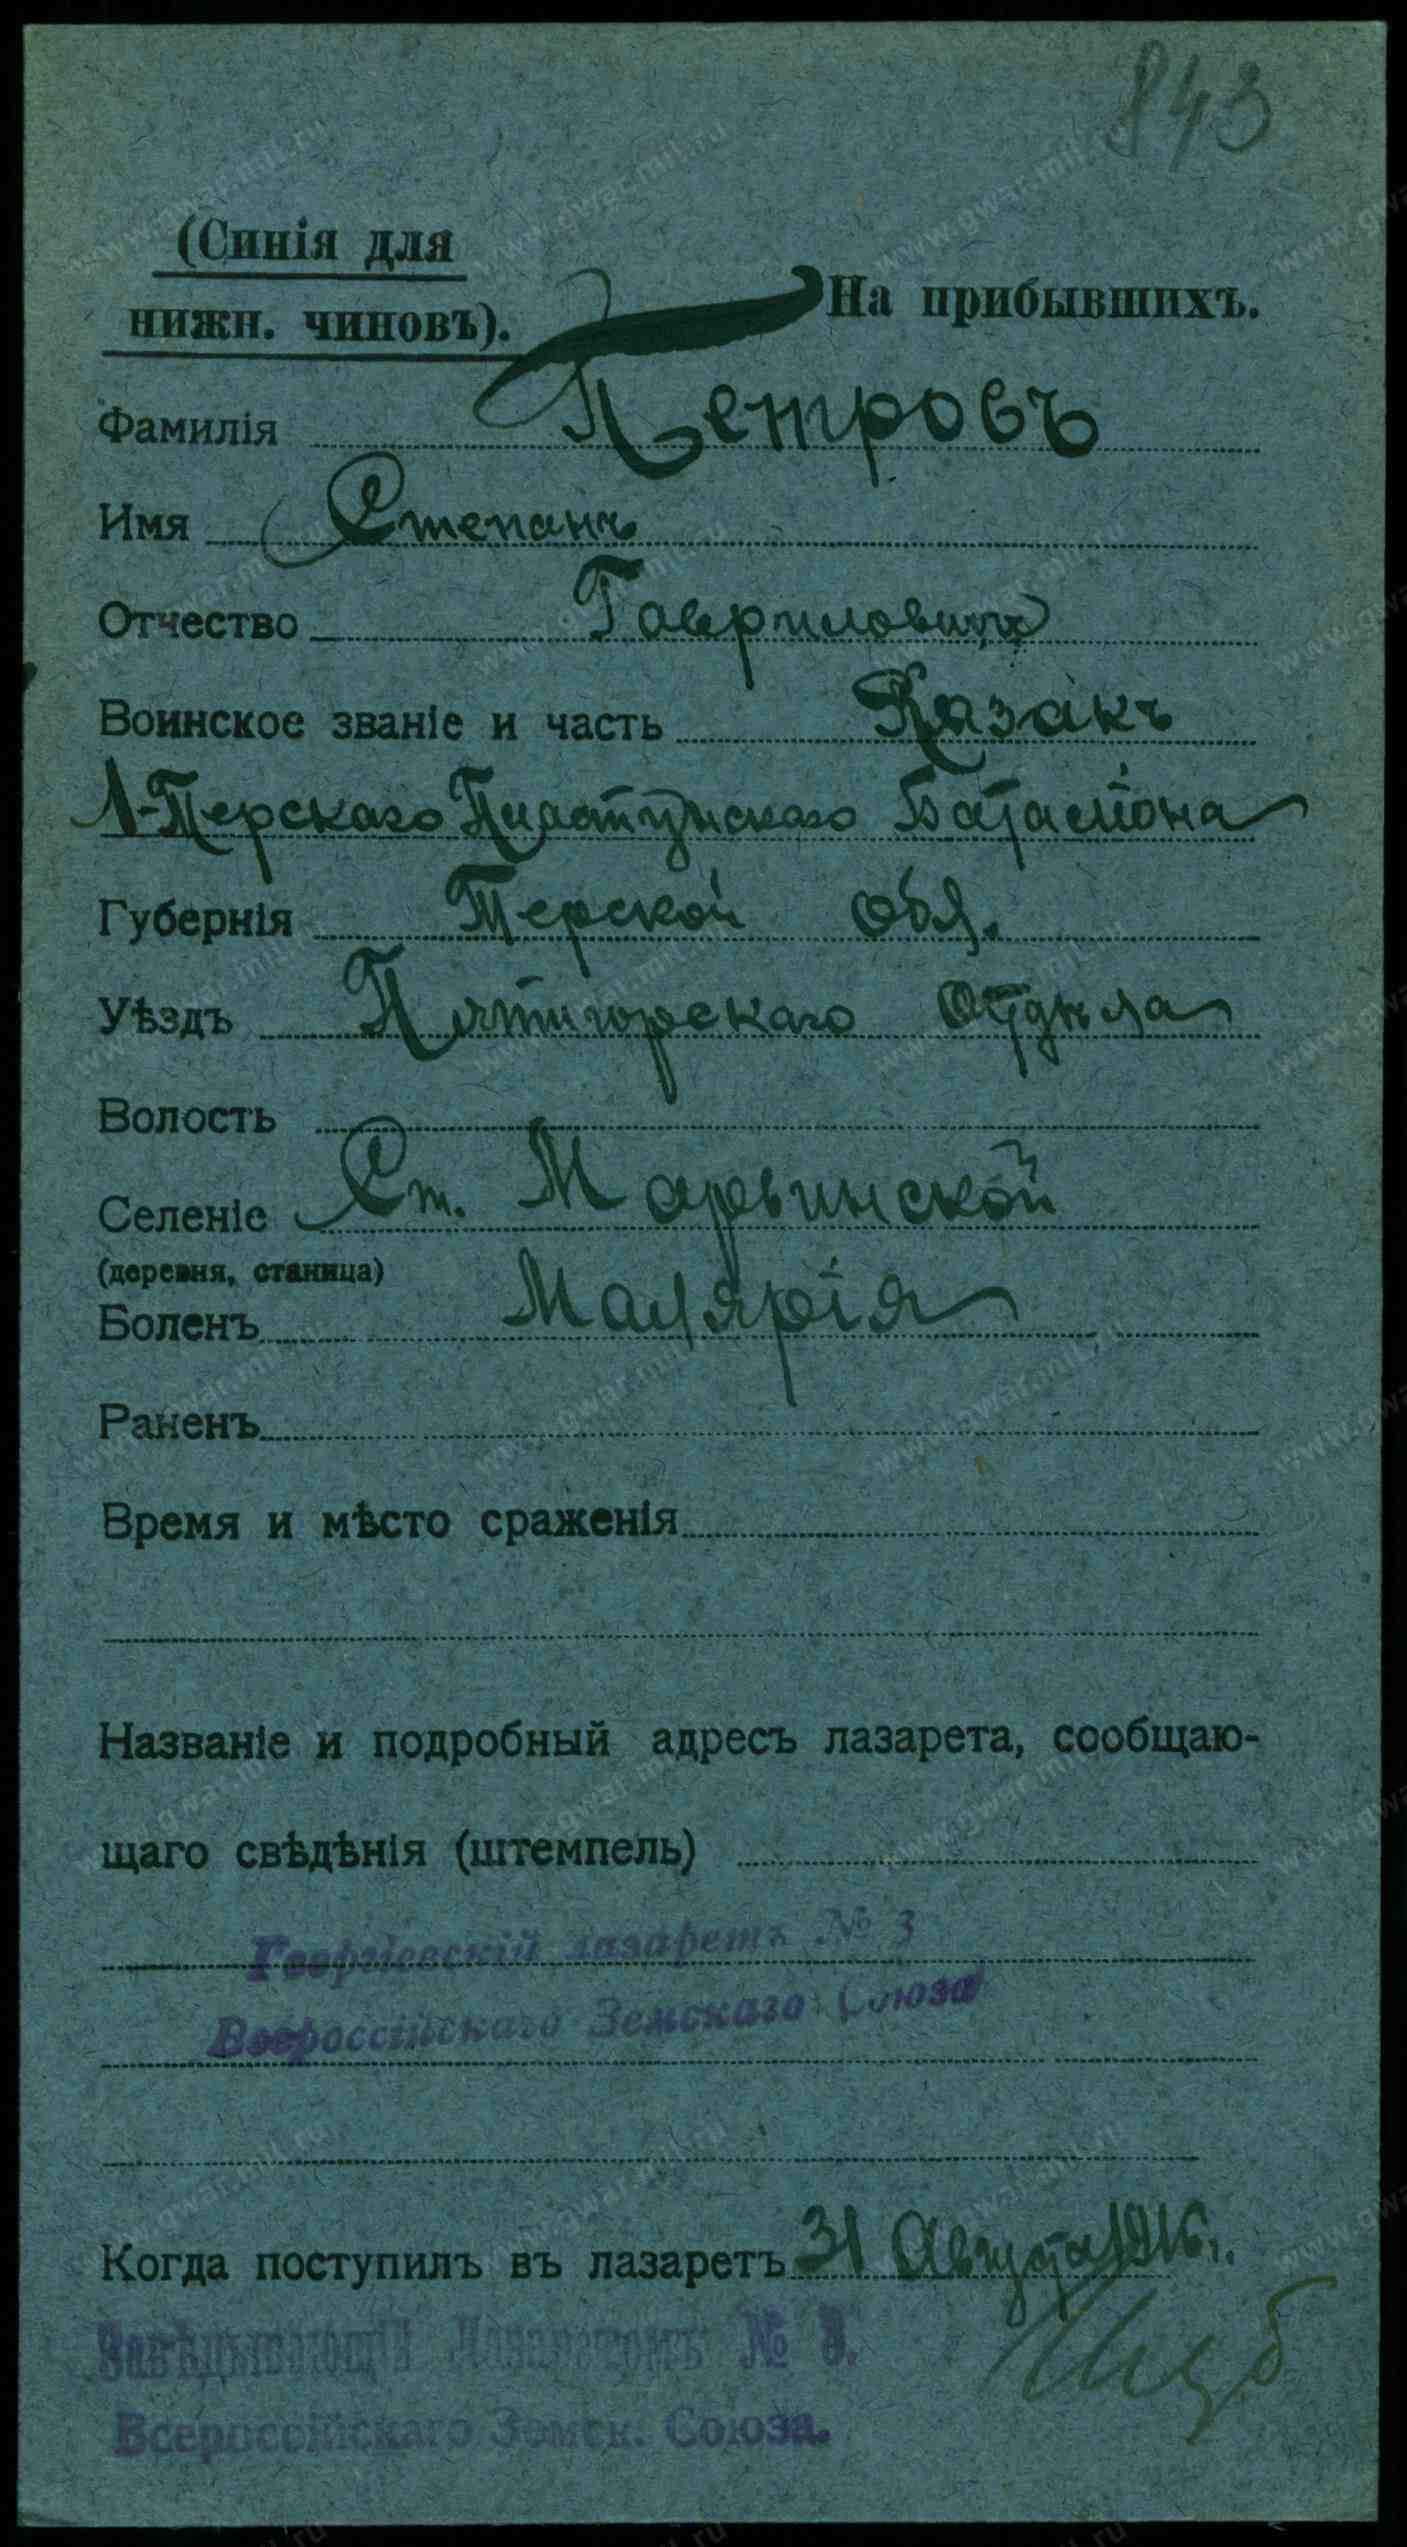 843
(Синія для
нижн. чиновъ).
На прибывшихъ.
Фамилія Петровъ
Имя Степанъ
Отчество Гавриловичъ
Воинское званіе и часть Казакъ
1-Терскаго Пластунскаго Баталіона
Губернія Терской обл.
Уѣздъ Пятигорскаго Отдѣла
Волость
Селеніе Ст. Марьинской
(деревня, станица)
Боленъ Малярія
Раненъ
Время и мѣсто сраженія
Названіе и подробный адресъ лазарета, сообщаю-
щаго свѣдѣнія (штемпель)
Георгіевскій лазаретъ № 3
Всероссійскаго Земскаго Союза
Когда поступилъ въ лазаретъ 31 Августа 1916 г.
Завѣдывающій Лазаретомъ № 3.
Всероссійскаго Земск. Союза.
www.gwar.mil.ru